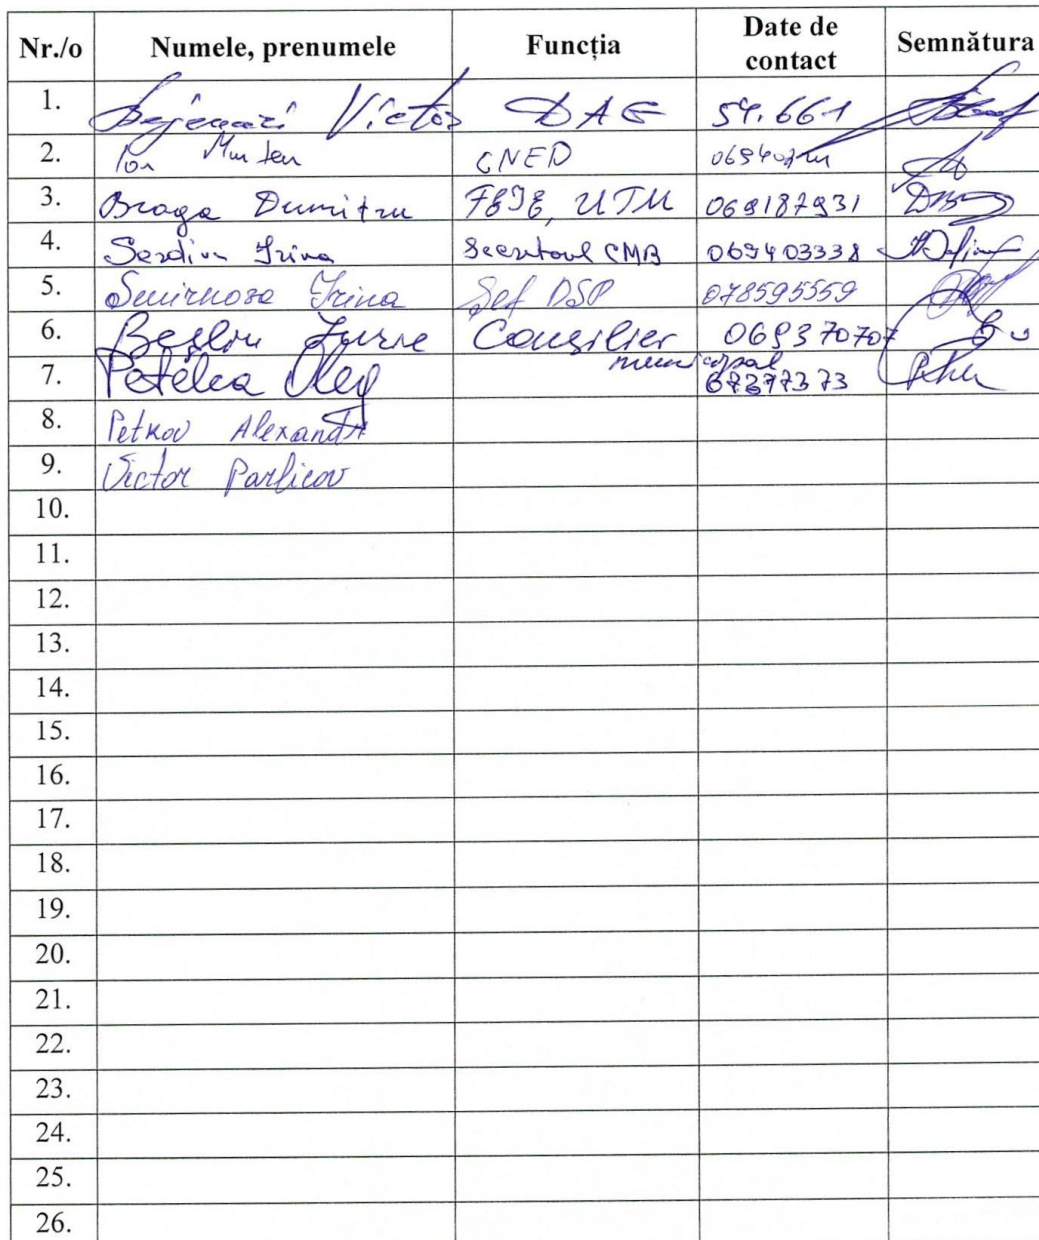 Nr./o Numele, prenumele Funcția Date de contact Semnătura
1. Bejenari Victor DAE 54.661
2. Ion Munten CNED
3. Braga Dumitru UTM 069187931
4. Serdiu Irina CMB 069403338
5. Smirnova Irina Șef DSP 078595559
6. Beșliu Iurie Consilier municipal 069370707
7. Petelca Oleg 67377373
8. Petkov Alexandr
9. Victor Parlicov
10.
11.
12.
13.
14.
15.
16.
17.
18.
19.
20.
21.
22.
23.
24.
25.
26.